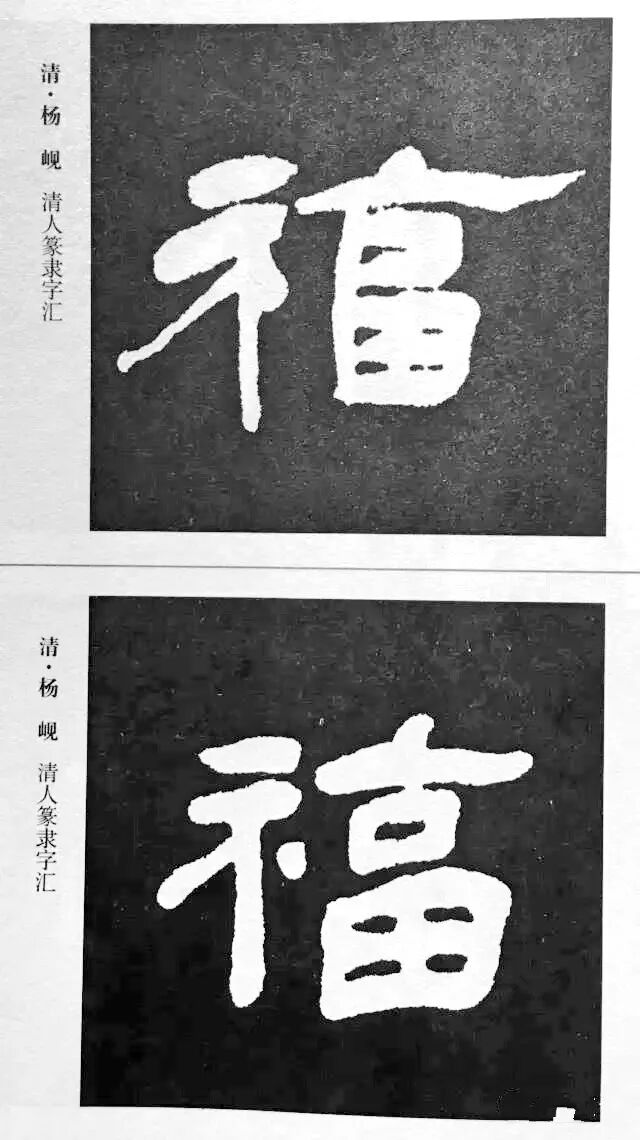 清·杨 岘 清人篆隶字汇
福
清·杨 岘 清人篆隶字汇
福